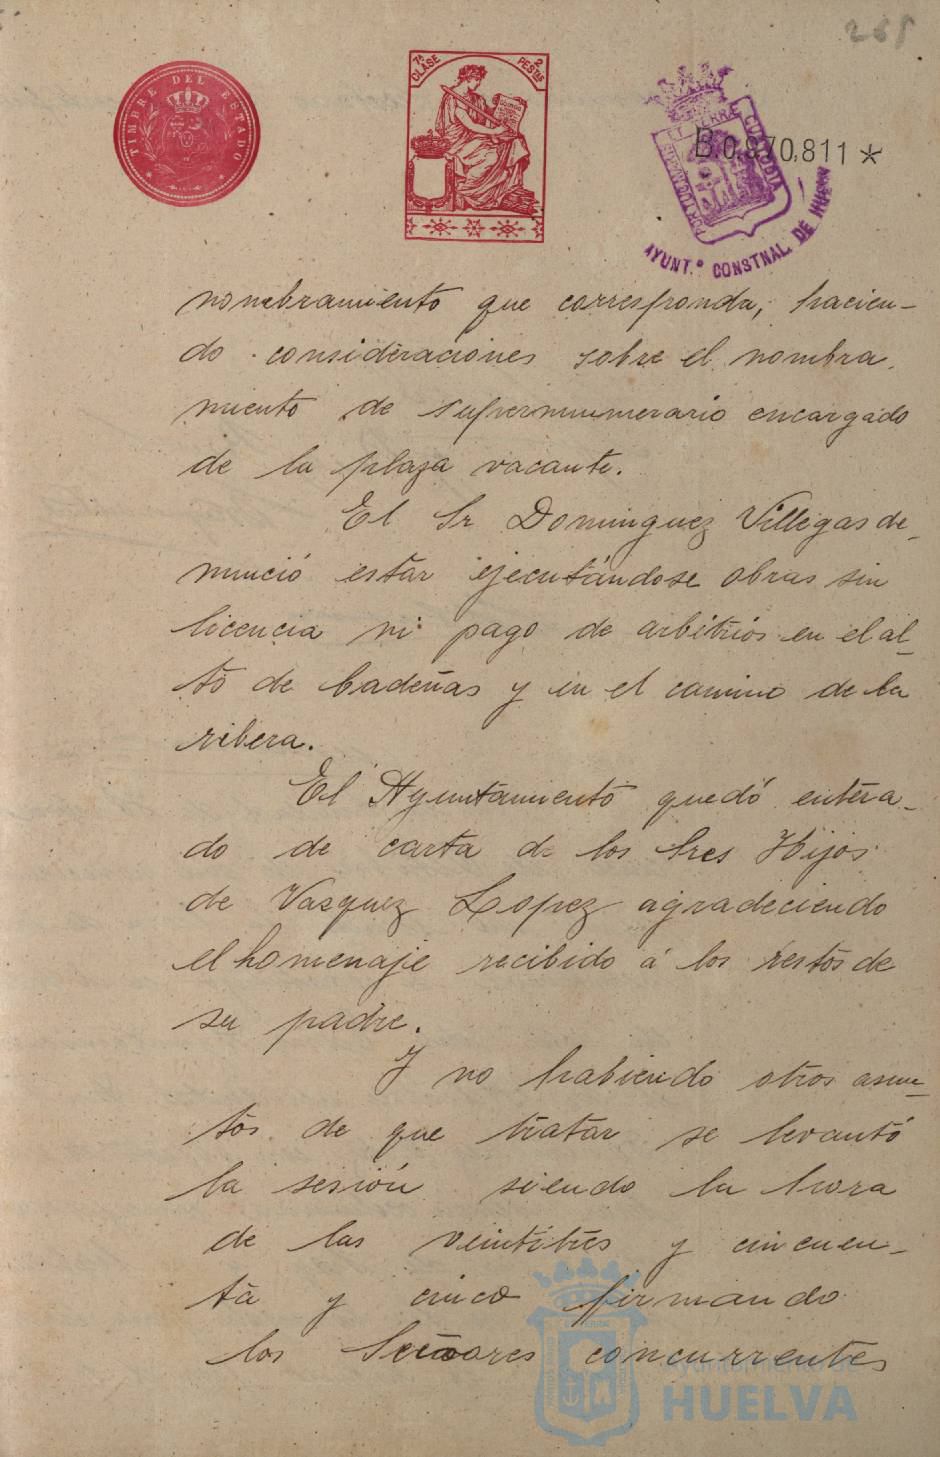 265
TIMBRE DEL ESTADO
7ª CLASE
2 PESTAS
B0,970,811*
PORTUS MARIS ET TERRÆ CUSTODIA
AYUNT.º CONSTNAL. DE HUELVA
nombramiento que corresponda, hacien-
do consideraciones sobre el nombra-
miento de supernumerario encargado
de la plaza vacante.
El Sr Dominguez Villegas de-
nunció estar ejecutándose obras sin
licencia ni pago de arbitrios en el al-
to de Cadeñas y en el camino de la
ribera.
El Ayuntamiento quedó entera-
do de carta de los Sres Hijos
de Vasquez Lopez agradeciendo
el homenaje recibido á los restos de
su padre.
Y no habiendo otros asun-
tos de que tratar se levantó
la sesión siendo la hora
de las veintitrés y cincuen-
ta y cinco firmando
los Señores concurrentes
Ayuntamiento de
HUELVA